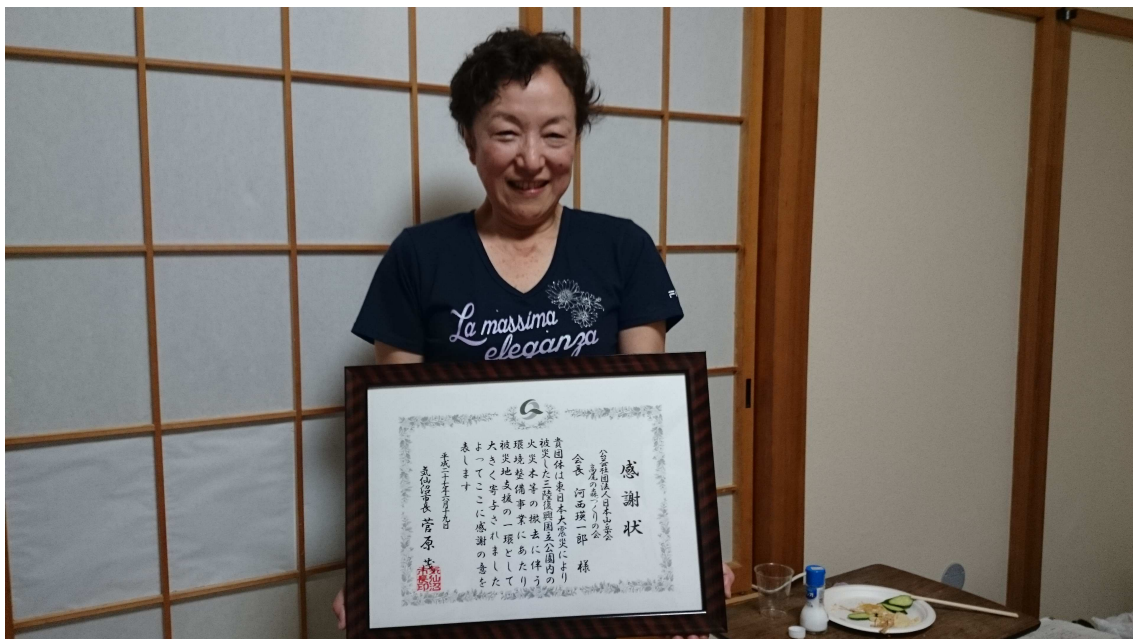 La massima
eleganza
感謝状
公益社団法人日本山岳会
高尾の森づくりの会
会長 河西瑛一郎 様
貴団体は東日本大震災により
被災した三陸復興国立公園内の
火災木等の撤去に伴う
環境整備事業にあたり
被災地支援の一環として
大きく寄与されました
よってここに感謝の意を
表します
平成二十七年六月十九日
気仙沼市長 菅原
気仙沼
市長印